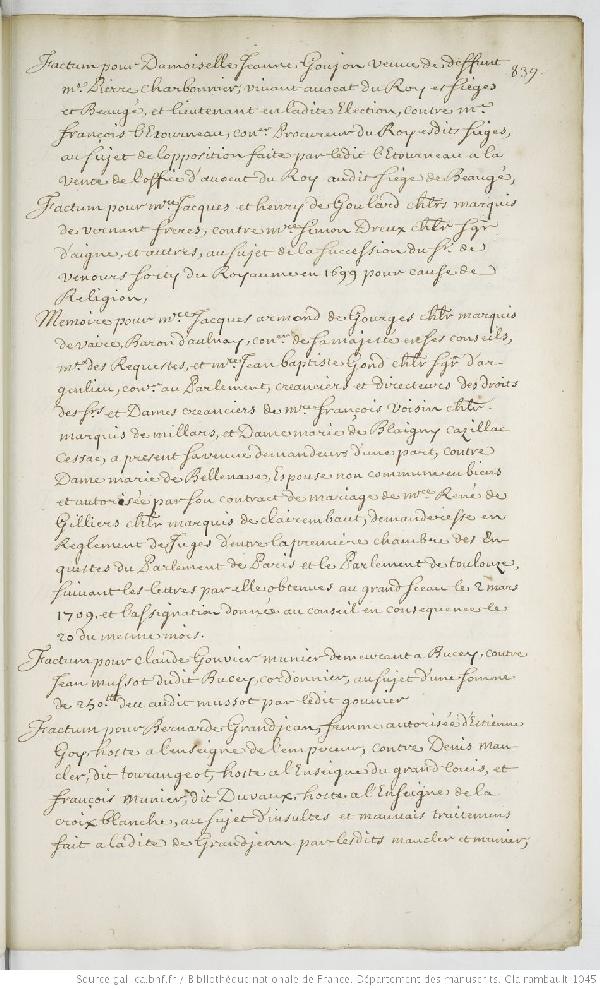 Factum pour Damoiselle Jeanne Goujon veuve de deffunt
839.
me. Pierre Charbonnier, vivant avocat du Roy es sieges
et Beaugé, et lieutenant en ladite Election, contre me.
françois l'Etourneau, conер Procureur du Roy esdits sieges,
au sujet de l'opposition faite par ledit l'Etourneau a la
vente de l'office d'avocat du Roy audit siege de Beaugé,
Factum pour mre Jacques et henry de Goulard chlr marquis
de vernant freres, contre mre Simon Dreux chlr sgr
d'aigne, et autres, au sujet de la succession du sr. de
venours sorty du Royaume en 1699 pour cause de
Religion,
Memoire pour mre Jacques armand de Gourges chlr marquis
de vaire, Baron d'aulnay, coner de sa majesté en ses conseils,
me des Requestes, et mre Jean baptiste Gond chlr sgr d'ar-
genlieu, coner au Parlement, creanciers et directeurs des droits
des srs et Dames creanciers de mre françois voisin chlr.
marquis de millars, et Dame marie de Blaigny cazillac
Cessac, a present sa veuve demandeurs d'une part, contre
Dame marie de Bellenave, Espouse non commune en biens
et autorisée par son contract de mariage de mre René de
Gilliers chlr marquis de clairembaut, demanderesse en
Reglement de Juges d'entre la premiere chambre des En-
questes du Parlement de Paris et le Parlement de toulouze,
suivant les lettres par elle obtenues au grand sceau le 2 mars
1709, et l'assignation donnée au conseil en consequence le
20 du mesme mois.
Factum pour claude Gouvier munier demeurant a Bucey, contre
Jean mussot dudit Bucey cordonnier, au sujet d'une somme
de 250.tt deue audit mussot par ledit gouvier
Factum pour Bernarde Grandjean, femme autorisée d'Estienne
Goy, hoste a l'enseigne de l'empereur, contre Denis man-
cler, dit tourangeot, hoste a l'Enseigne du grand louis, et
françois munier, dit Duvaux, hoste a l'Enseigne de la
croix blanche, au sujet d'insultes et mauvais traitemens
fait a ladite de Grandjean par lesdits mancler et munier,
Source gallica.bnf.fr / Bibliothèque nationale de France. Département des manuscrits. Clairambault 1045